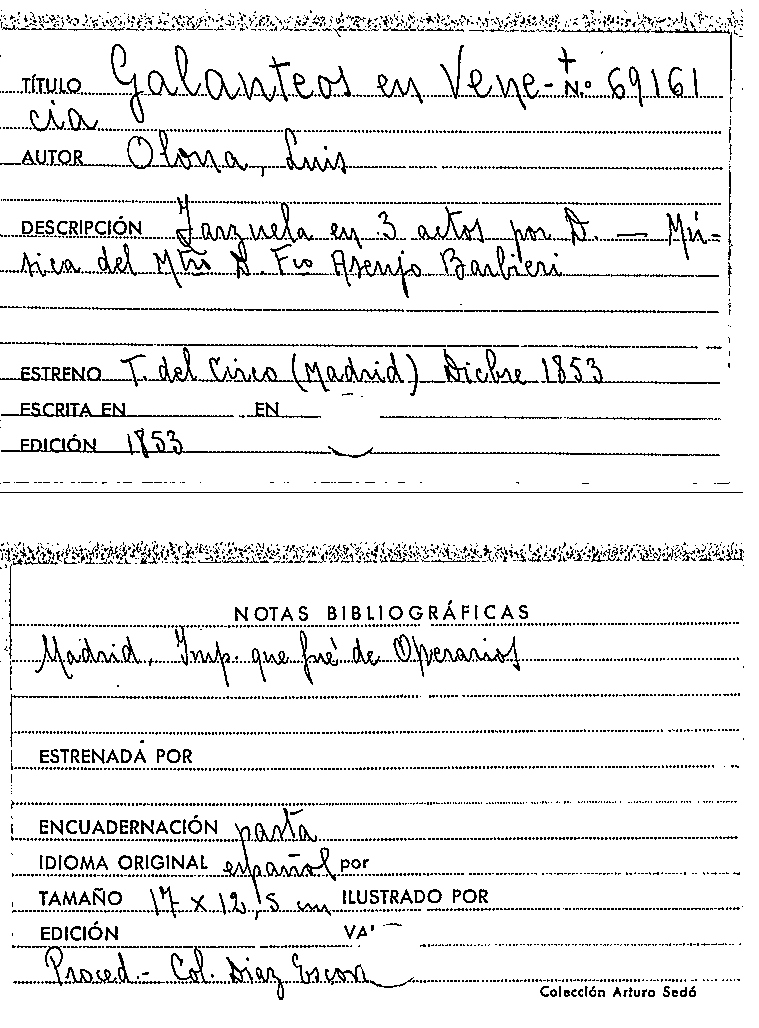 TÍTULO Galanteos en Vene- † N.º 69161
cia
AUTOR Olona, Luis
DESCRIPCIÓN Zarzuela en 3 actos por D. — Mú-
sica del Mtro D. Fco Asenjo Barbieri
ESTRENO T. del Circo (Madrid) Dicbre 1853
ESCRITA EN EN
EDICIÓN 1853
NOTAS BIBLIOGRÁFICAS
Madrid, Imp. que fué de Operarios
ESTRENADA POR
ENCUADERNACIÓN pasta
IDIOMA ORIGINAL español por
TAMAÑO 17 x 12,5 cm ILUSTRADO POR
EDICIÓN
Proced.- Col. Diaz Escov
Colección Arturo Sedó